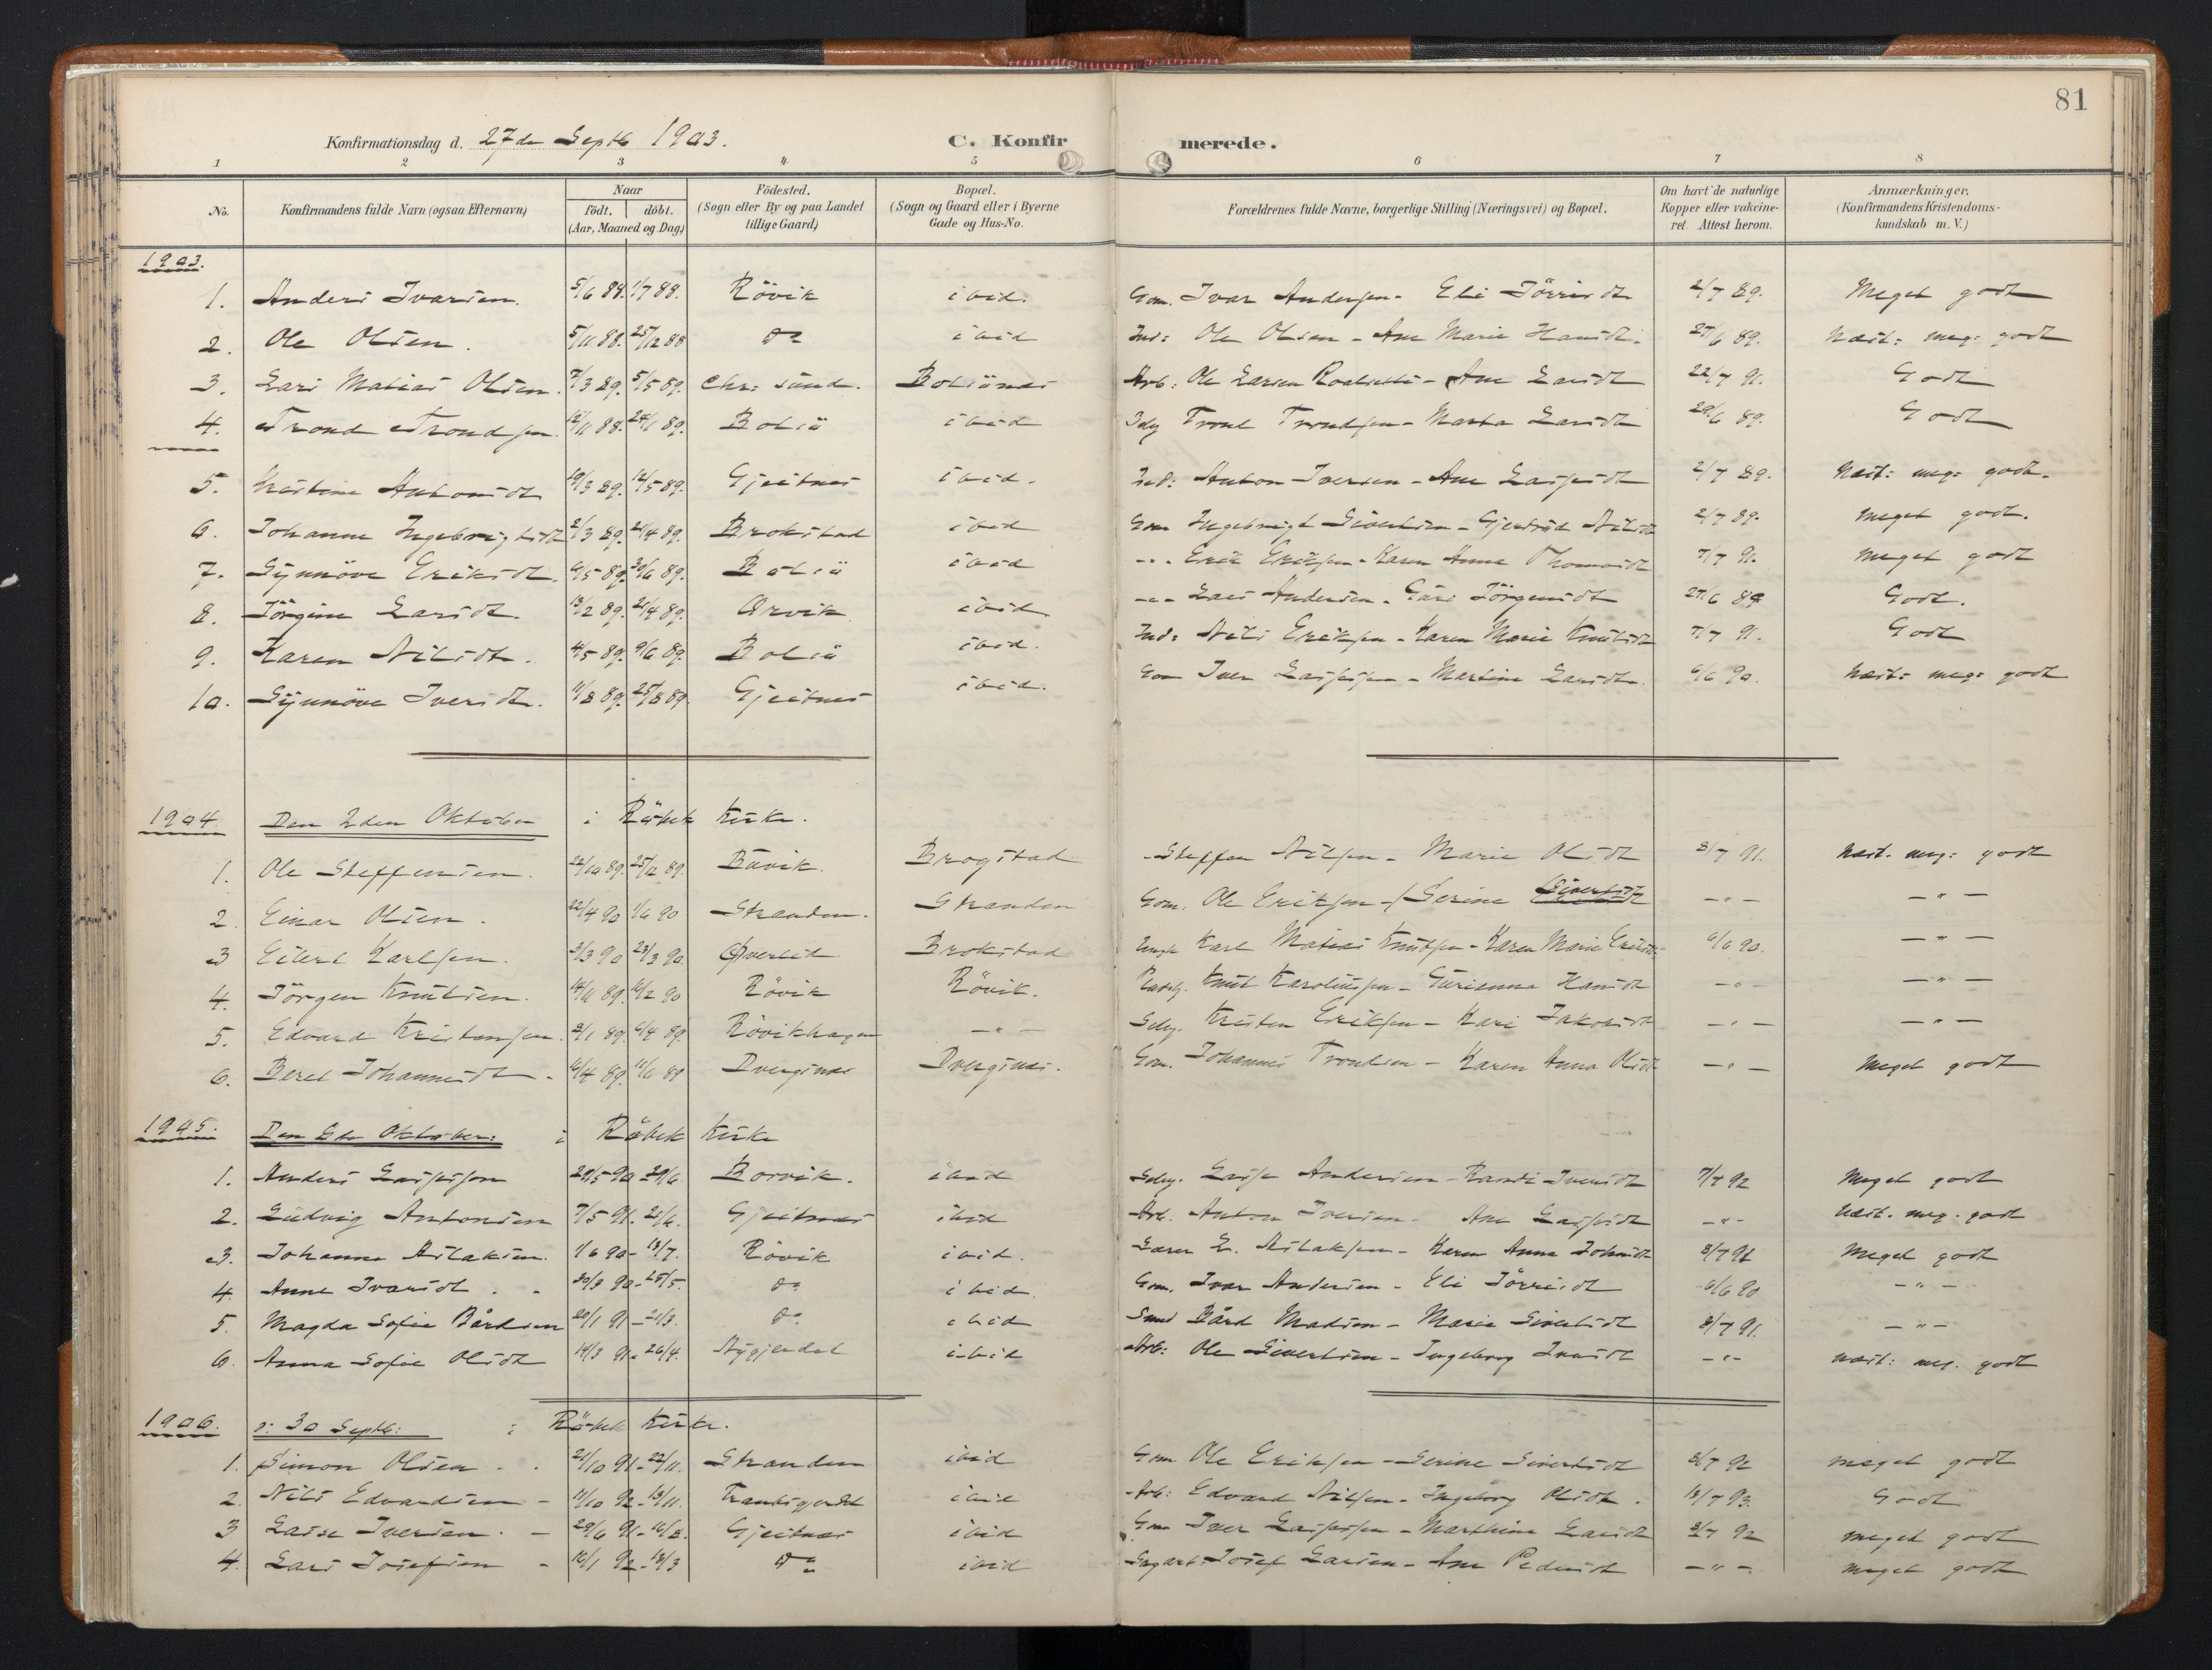 81
Konfirmationsdag d. 27de Septb 1903. C. Konfirmerede.
1 2 3 4 5 6 7 8
No. Konfirmandens fulde Navn (ogsaa Efternavn) Naar födt. döbt. (Aar, Maaned og Dag) Födested. (Sogn eller By og paa Landet tillige Gaard) Bopæl. (Sogn og Gaard eller i Byerne Gade og Hus-No. Forældrenes fulde Navne, borgerlige Stilling (Næringsvei) og Bopæl. Om havt de naturlige Kopper eller vakcineret. Attest herom. Anmærkninger. (Konfirmandens Kristendomskundskab m. V.)
1903.
1. Anders Ivarsen. 5/6 88. 1/7 88. Rövik ibid. Gom. Ivar Andersen - Eli Törrisdt 2/7 89. Meget godt
2. Ole Olsen. 5/11 88. 25/12 88 Do ibid Ind: Ole Olsen - Ane Marie Hansdt. 27/6 89. Næst: meg: godt
3. Lars Matias Olsen. 7/3 89. 5/5 89. Chr:sund. Bolsünæs Arb: Ole Larsen - Ane Larsdt 22/7 91. Godt
4. Trond Trondsen. 12/11 88. 24/1 89. Bolsü ibid Trond Trondsen - Marta Larsdt 29/6 89. Godt
5. Kristine Antonsdt 19/3 89. 12/5 89. Gjeitnes ibid. Ind: Anton Iversen - Ane Lassesdt 2/7 89. Næst: meg: godt.
6. Johanne Ingebrigtsdt 2/3 89. 21/4 89. Brokstad ibid Gom Ingebrigt Sivertsen - Gjertrud Nilsdt 2/7 89. Meget godt.
7. Synnöve Eriksdt. 6/5 89. 30/6 89. Bolsü ibid -"- Erik Eriksen - Karen Anna Thomasdt 7/7 91. Meget godt
8. Jörgine Larsdt. 13/2 89. 21/4 89. Orvik ibid -"- Lars Andersen - Guri Jörgensdt 27/6 89 Godt.
9. Karen Nilsdt. 4/5 89. 9/6 89. Bolsü ibid. Ind: Nils Eriksen - Karen Marie Knutsdt 7/7 91. Godt
10. Synnöve Iversdt. 11/8 89. 25/8 89 Gjeitnes ibid. Gom Iver Lassesen - Martine Larsdt. 6/6 90. Næst: meg: godt
1904. Den 2den Oktober i Röbek Kirke.
1. Ole Steffensen. 22/10 89. 25/12 89. Brogstad Steffen Nilsen - Marie Olsdt 8/7 91. Næst. meg: godt
2. Einar Olsen. 22/4 90 1/6 90 Stranden. Stranden Gom. Ole Eriksen - Serine Sivertsdt -"- -"-
3 Eilert Karlsen. 2/3 90 23/3 90. Øverlid Brokstad Karl Matias Knutsen - Karen Marie Eriksdt. 6/6 90. -"-
4. Jörgen Knutsen. 14/11 89. 16/2 90 Rövik Rövik. Knut Karolusen - Gurianna Hansdt -"- -"-
5. Edvard Kristensen. 2/1 89. 6/4 89. Rövikhagen -"- Selvg. Kristen Eriksen - Kari Jakobsdt -"- -"-
6. Beret Johannesdt. 16/4 89. 11/6 89 Dvergsnæs Dvergsnæs. Gom. Johannes Trondsen - Karen Anna Olsdt -"- Meget godt
1905. Den 8de Oktober: i Röbek Kirke
1. Anders Lassesen 20/5 90 29/6. Borvik. ibid Selvg. Lasse Andersen - Randi Iversdt 7/7 92 Meget godt
2. Ludvig Antonsen 7/5 91. 21/6. Gjeitnæs ibid Arb. Anton Iversen - Ane Lassesdt -"- Næst. meg. godt
3. Johanne Aslaksen. 1/6 90 - 13/7. Rövik ibid. Lærer L. Aslaksen - Karen Anna Johansdt 8/7 91 Meget godt
4. Anne Ivarsdt. 30/3 90 - 25/5. Do ibid. Gom. Ivar Andersen - Eli Törrisdt 6/6 90 -"-
5. Magda Sofie Bårdsen 20/1 91 - 21/3. Do ibid Smed Bård Madsen - Marie Sivertsdt 8/7 91. -"-
6. Anna Sofie Olsdt 14/3 91 - 26/4. Nygjerdet ibid Arb: Ole Sivertsen - Ingeborg -"- næst: meg. godt
1906. d: 30 Septb: i Röbek Kirke.
1. Simon Olsen. 21/10 91 - 22/11. Stranden ibid Gom Ole Eriksen - Serine Sivertsdt 8/7 92 meget godt
2. Nils Edvardsen - 11/10 92 - 13/11. ibid Arb: Edvard Nilsen - Ingeborg Olsdt. 13/7 93. Godt
3 Lasse Iversen. - 29/6 91 - 16/8. Gjeitnæs ibid Gom Iver Lassesen - Marthine Larsdt 8/7 92 meget godt
4. Lars Josefsen - 16/1 92 - 13/3 Do ibid Sagarb: Josef Larsen - Ane Pedersdt -"- meget godt